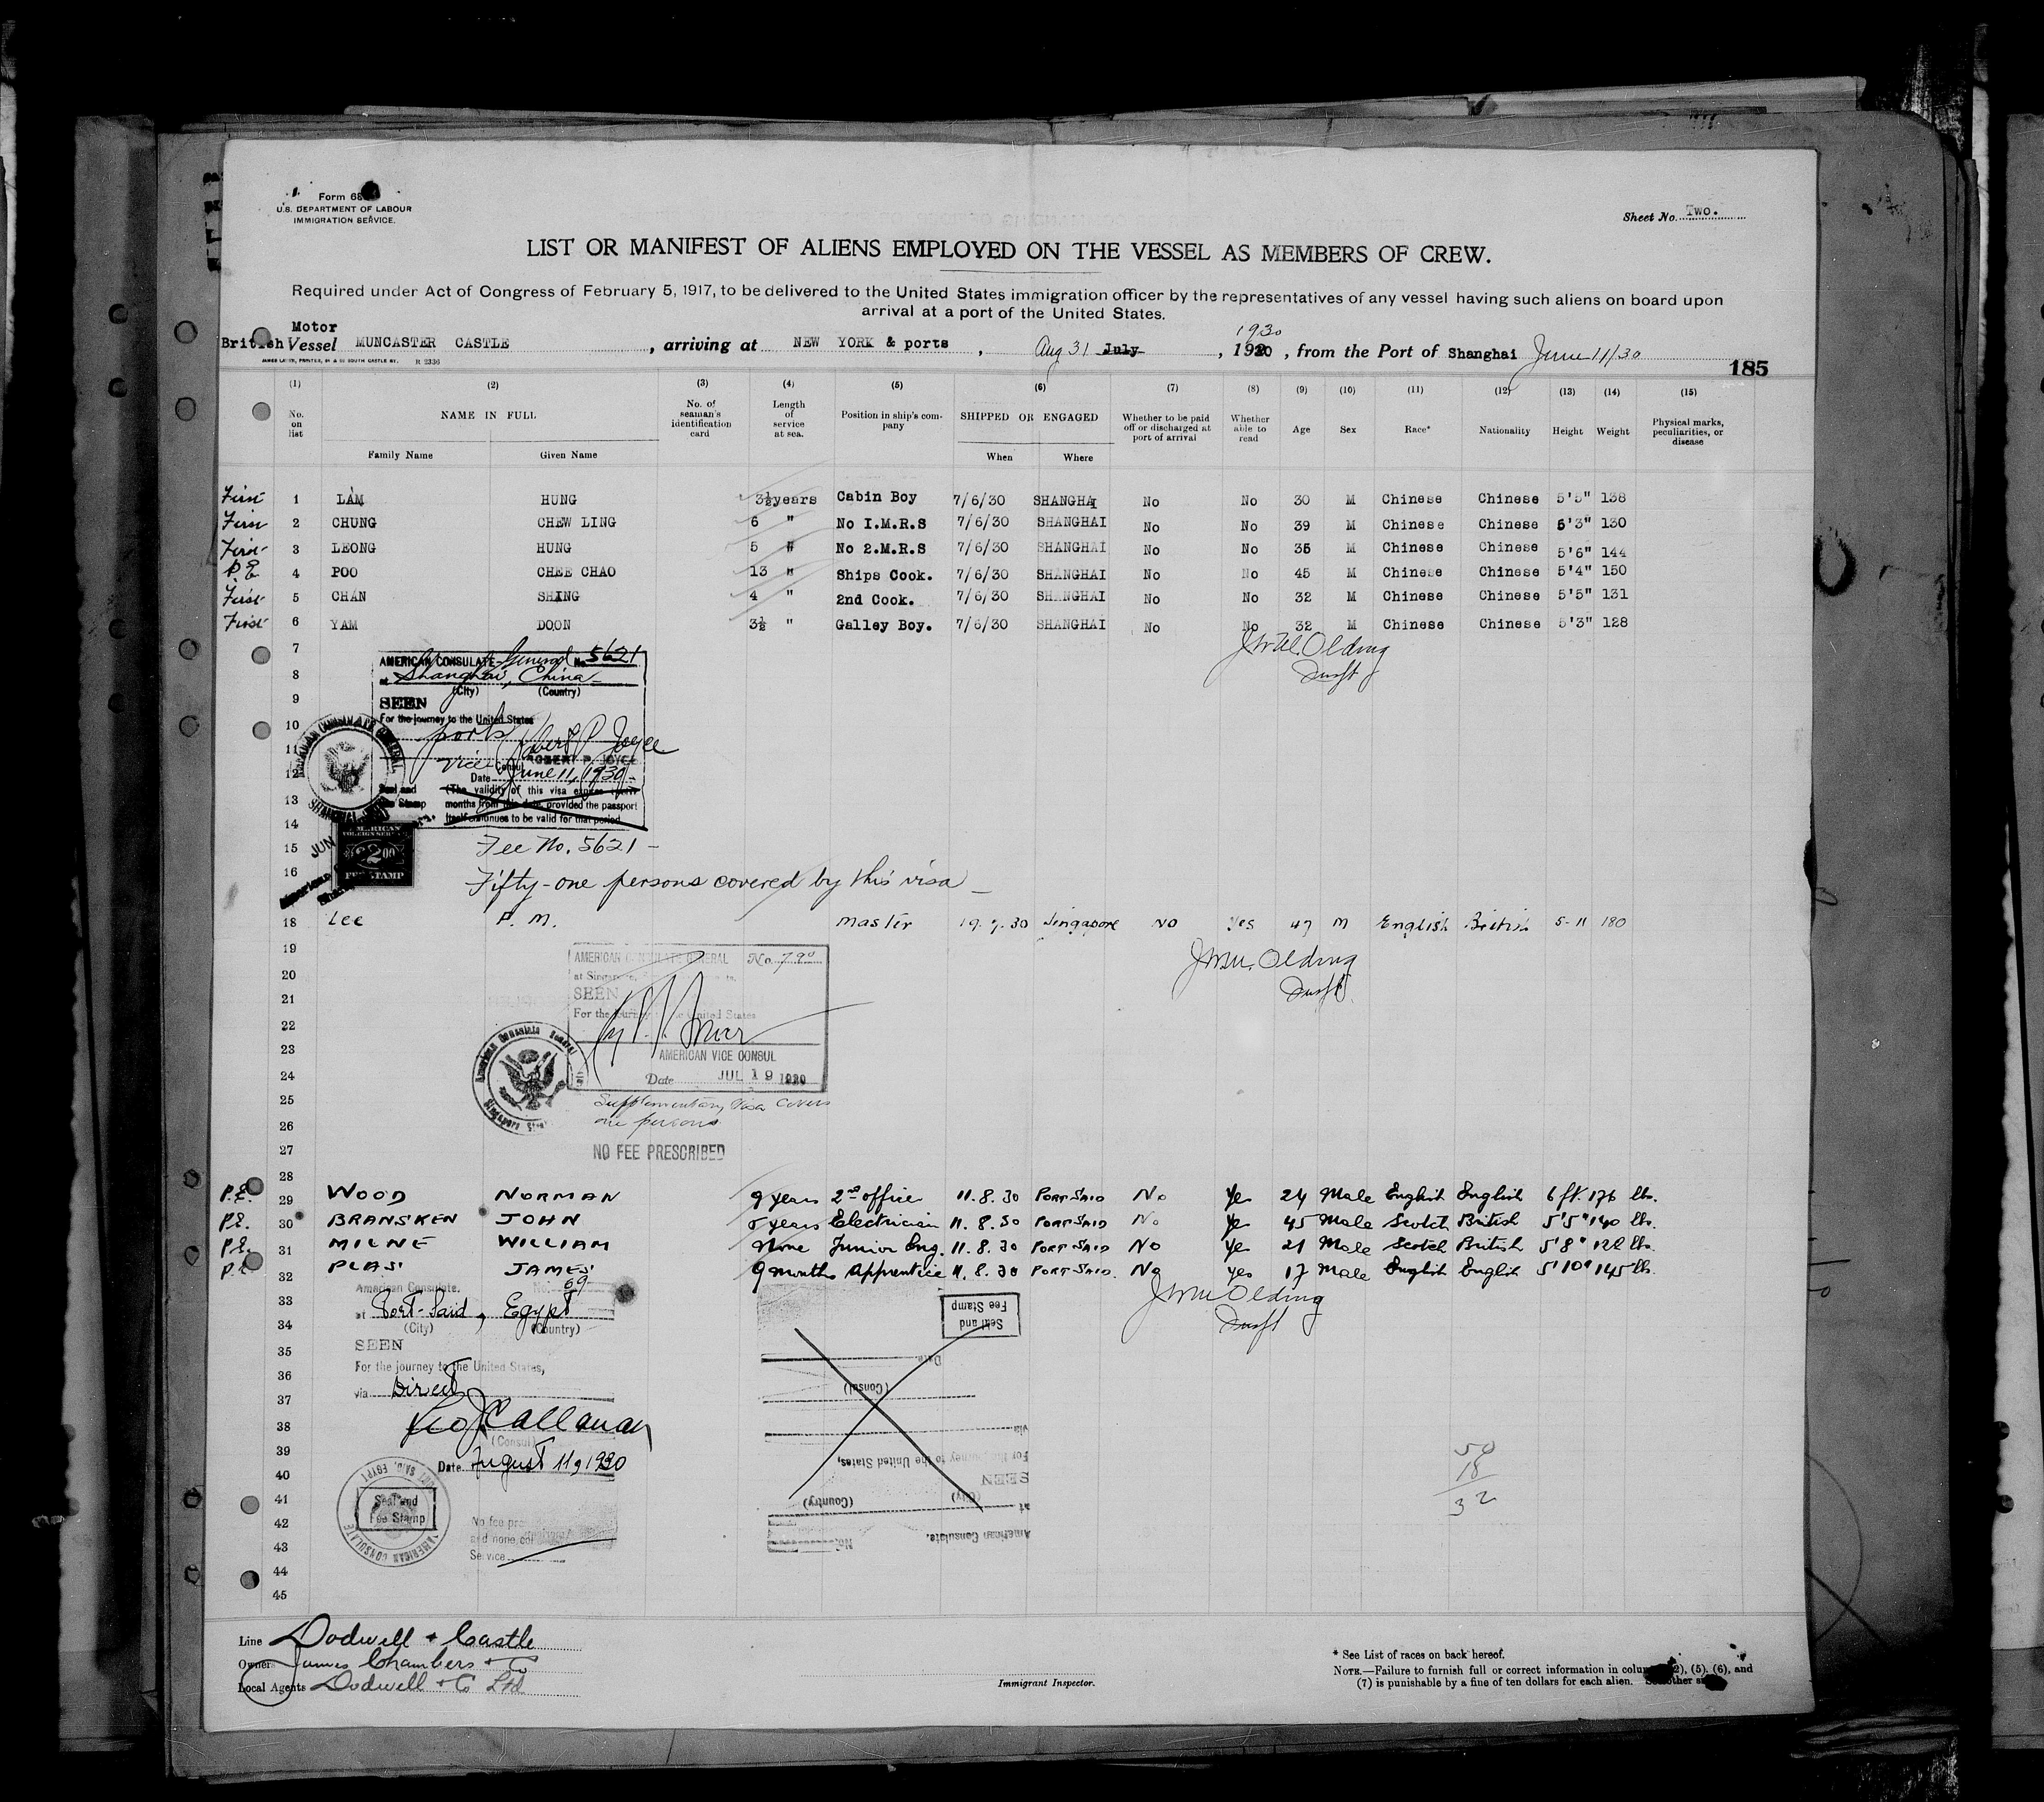 Form 68
U.S. DEPARTMENT OF LABOUR
IMMIGRATION SERVICE.
Sheet No. Two.
LIST OR MANIFEST OF ALIENS EMPLOYED ON THE VESSEL AS MEMBERS OF CREW.
Required under Act of Congress of February 5, 1917, to be delivered to the United States immigration officer by the representatives of any vessel having such aliens on board upon
arrival at a port of the United States.
1930
Motor
British Vessel MUNCASTER CASTLE, arriving at NEW YORK & ports, Aug 31 July, 1930, from the Port of Shanghai June 11/30
185
(1) (2) (3) (4) (5) (6) (7) (8) (9) (10) (11) (12) (13) (14) (15)
No. on list NAME IN FULL No. of seaman's identification card Length of service at sea. Position in ship's company SHIPPED OR ENGAGED Whether to be paid off or discharged at port of arrival Whether able to read Age Sex Race* Nationality Height Weight Physical marks, peculiarities, or disease
Family Name Given Name When Where
First 1 LAM HUNG 3½years Cabin Boy 7/6/30 SHANGHAI No No 30 M Chinese Chinese 5'5" 138
First 2 CHUNG CHEW LING 6 " No I.M.R.S 7/6/30 SHANGHAI No No 39 M Chinese Chinese 5'3" 130
First 3 LEONG HUNG 5 " No 2.M.R.S 7/6/30 SHANGHAI No No 35 M Chinese Chinese 5'6" 144
P.E 4 POO CHEE CHAO 13 " Ships Cook. 7/6/30 SHANGHAI No No 45 M Chinese Chinese 5'4" 150
First 5 CHAN SHING 4 " 2nd Cook. 7/6/30 SHANGHAI No No 32 M Chinese Chinese 5'5" 131
First 6 YAM DOON 3½ " Galley Boy. 7/6/30 SHANGHAI No No 32 M Chinese Chinese 5'3" 128
7
Olding
AMERICAN CONSULATE General No. 5621
8
at Shanghai, China
(City) (Country)
9
SEEN
For the journey to the United States
10
ports
11
Robert P. Joyce
ROBERT P. JOYCE
12
Vice Consul
Date June 11, 1930
Seal and
Fee Stamp
(The validity of this visa expires
13
months from this date, provided the passport
itself continues to be valid for that period.
AMERICAN CONSULATE GENERAL
SHANGHAI
14
AMERICAN
FOREIGN SERVICE
$2.00
FEE STAMP
JUN
15
Fee No. 5621
16
Fifty-one persons covered by this visa
18 Lee P. M. Master 19.7.30 Singapore No Yes 47 M English British 5-11 180
19
Olding
AMERICAN CONSULATE GENERAL No. 790
20
at Singapore,
21
SEEN
22
For the journey to the United States
23
AMERICAN VICE CONSUL
24
Date JUL 19 1930
American Consulate General
Singapore
25
Supplementary Visa covers
26
one persons
27
NO FEE PRESCRIBED
28
P.E. 29 WOOD NORMAN 9 years 2nd office 11.8.30 PORT SAID No Yes 24 Male English English 6 ft. 176 lbs.
P.E. 30 BRANSKEN JOHN 5 years Electrician 11.8.30 PORT SAID No Yes 45 Male Scotch British 5'5" 140 lbs.
P.E. 31 MILNE WILLIAM None Junior Eng. 11.8.30 PORT SAID No Yes 21 Male Scotch British 5'8" 128 lbs.
P.E. 32 PLAS JAMES 9 months Apprentice 11.8.30 PORT SAID. No Yes 17 Male English English 5'10" 145 lbs.
Olding
American Consulate. No. 69
33
at Port-Said, Egypt
34
(City) (Country)
35
SEEN
36
For the journey to the United States,
37
via Direct
38
Callanan
39
(Consul)
40
Date August 11, 1930
AMERICAN CONSULATE
PORT SAID, EGYPT
41
Seal and
Fee Stamp
42
No fee
43
and none
Service
44
45
Seal and
Fee Stamp
Date
(Consul)
via
For the journey to the United States,
SEEN
(City) (Country)
at
American Consulate.
No.
50
18
32
Line Dodwell + Castle
Owners James Chambers + Co
Local Agents Dodwell + Co Ltd
Immigrant Inspector.
* See List of races on back hereof.
NOTE.—Failure to furnish full or correct information in columns (2), (5), (6), and
(7) is punishable by a fine of ten dollars for each alien. See other side